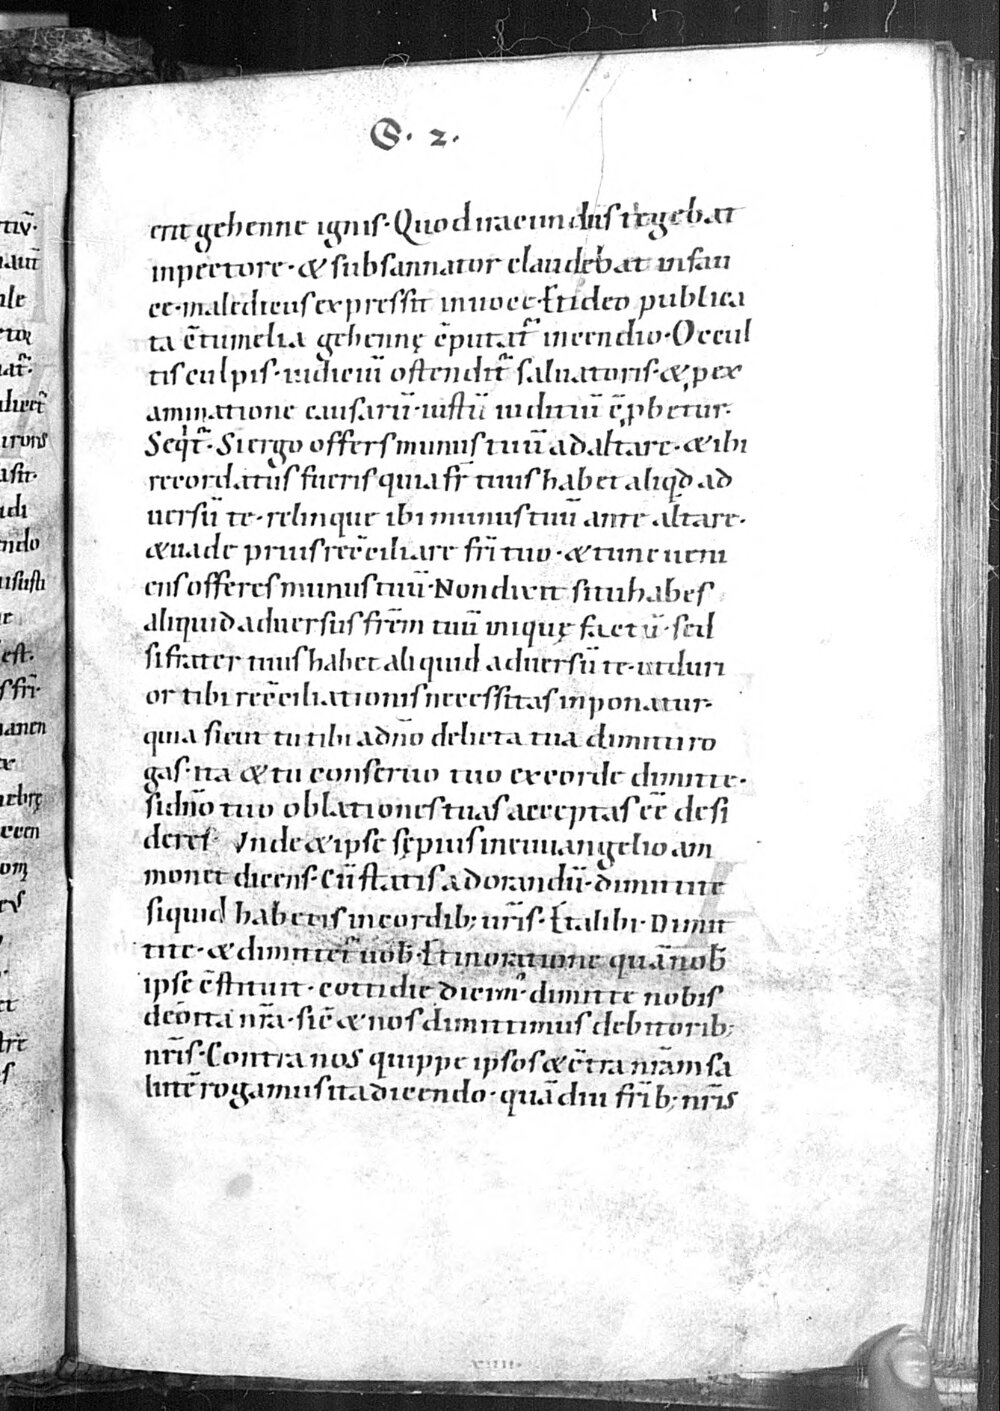 S. 2.
erit gehenne ignis· Quod iracundus tegebat
in pectore· & subsannator claudebat in fau
ce· maledicus expressit in uoce· Et ideo publica
ta c̄tumelia gehennę c̄putat᷑ incendio· Occul
tis culpis· iudiciū ostendit᷑ saluatoris· & p ex
aminatione causarū· iustū iuditiū c̄pbetur·
Seqit᷑· Si ergo offers munus tuū ad altare· & ibi
recordatus fueris quia fr̄ tuus habet aliqd ad
uersū te· relinque ibi munus tuū ante altare·
& uade prius rec̄ciliare fr̄i tuo· & tunc ueni
ens offeres munus tuū· Non dixit si tu habes
aliquid aduersus fr̄em tuū inique factū· sed
si frater tuus habet aliquid aduersū te· ut duri
or tibi rec̄ciliationis necessitas inponatur·
quia sicut tu tibi a dn̄o debita tua dimitti ro
gas· ita & tu conseruo tuo ex corde dimitte·
si dn̄o tuo oblationes tuas acceptas ēē desi
deres· Vnde & ipse sępius in euuangelio am
monet dicens· Cū statis ad orandū· dimittite
siquid habetis in cordib; ur̄is· Et alibi· Dimit
tite· & dimittet᷑ uob̄· Et in oratione quā nob̄
ipse c̄stituit· cottidie dicim᷒· dimitte nobis
debita nr̄a· sic̄ & nos dimittimus debitorib;
nr̄is· Contra nos quippe ipsos & c̄tra nr̄am sa
lutē rogamus ita dicendo· quādiu fr̄ib; nr̄is